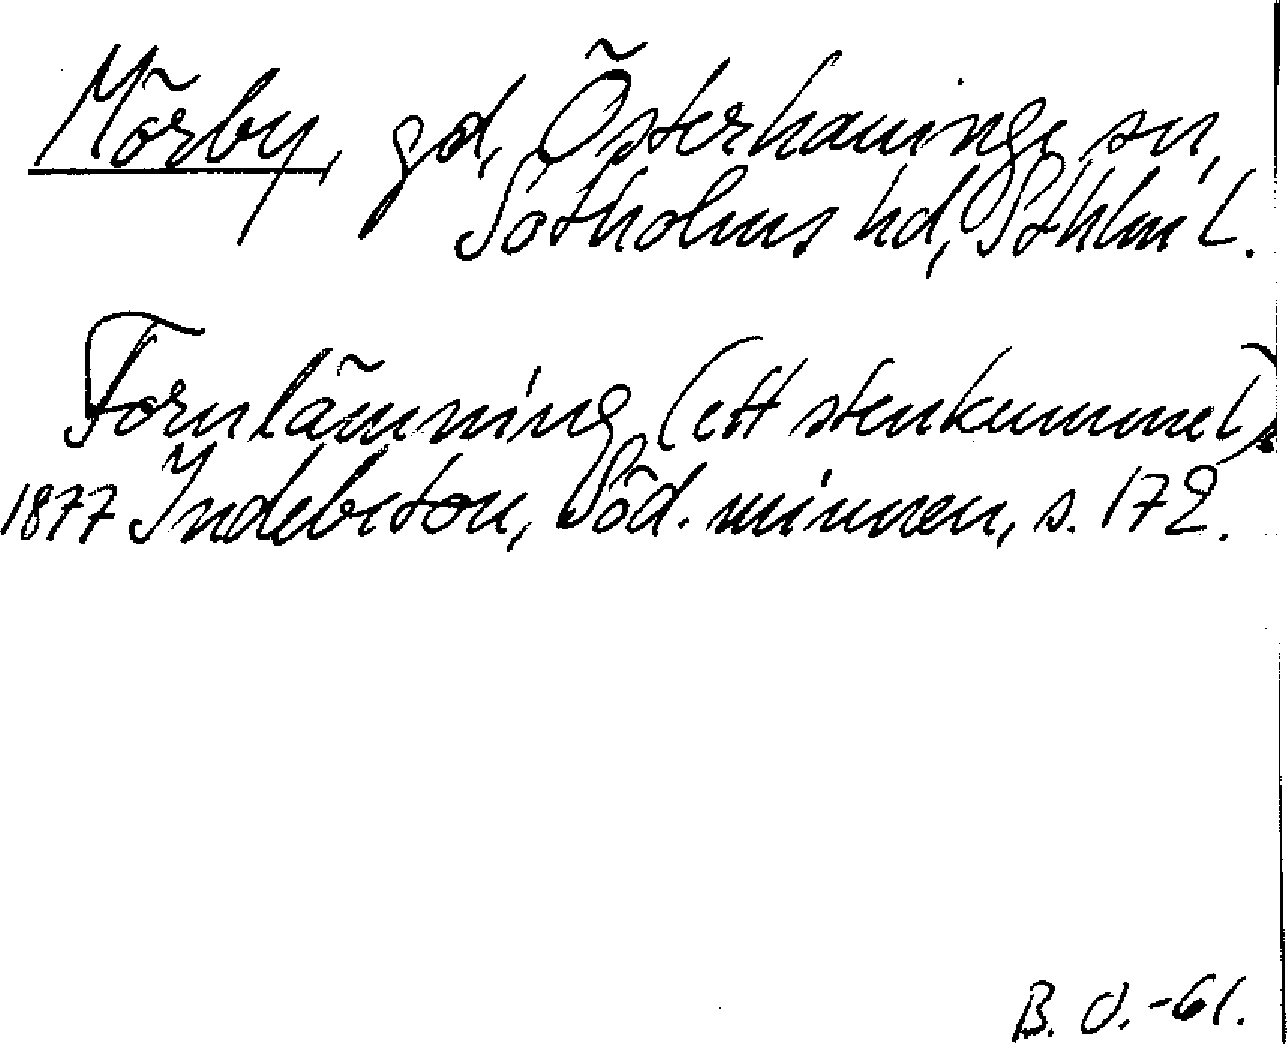 Mörby, gd, Österhaninge sn,
Sotholms hd, Sthlm L.
Fornlämning (ett stenkummel),
1877 Indebetou, Söd. minnen, s. 172.
B. O. -61.